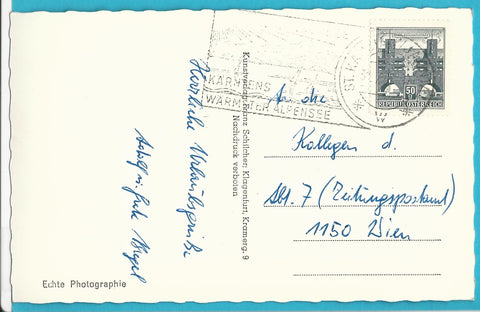 KÄRNTENS
WARMER ALPENSEE
50
REPUBLIK ÖSTERREICH
Herzliche Urlaubsgrüße
Kunstverlag Franz Schilcher, Klagenfurt, Kramerg. 9
Nachdruck verboten
An die
Kollegen d.
Abt. 7 (Zeitungspostamt)
1150 Wien
Echte Photographie